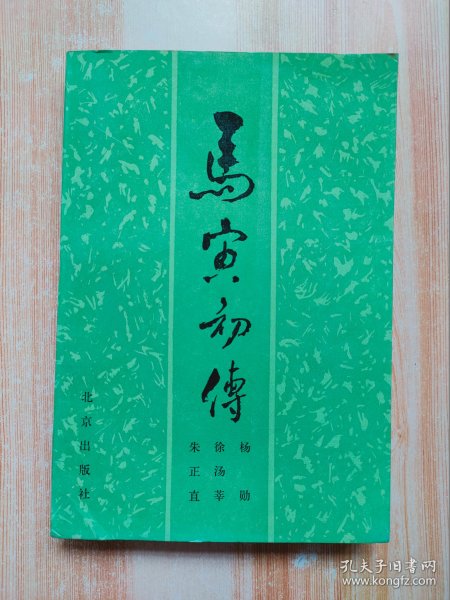 馬寅初傳
杨勋
徐汤莘
朱正直
北京出版社
孔夫子旧书网
www.kongfz.com